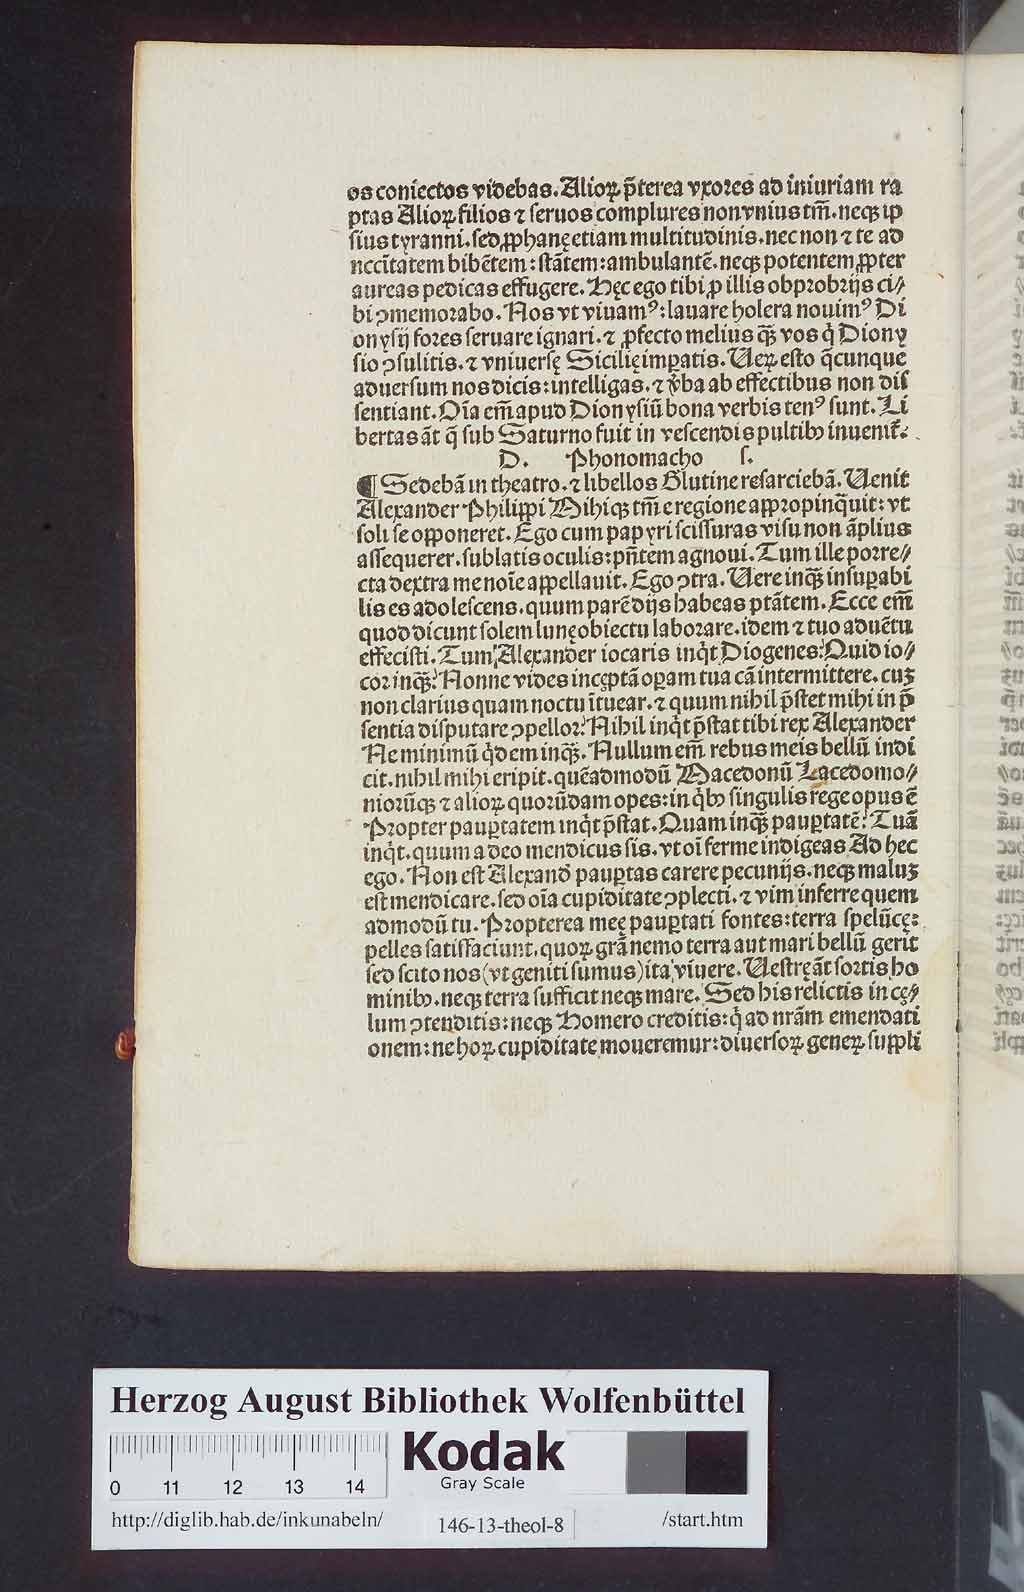 os coniectos videbas. Alioꝝ p̄terea vxores ad iniuriam ra
ptas Alioꝝ filios ⁊ seruos complures non vnius tm̄. neqꝫ ip
sius tyranni. sed ꝓphanę etiam multitudinis. nec non ⁊ te ad
nccītatem bibētem: stātem: ambulantē. neqꝫ potentem ꝓpter
aureas pedicas effugere. Hęc ego tibi ꝓ illis obprobrijs ci⸗
bi ꝯmemorabo. Nos vt viuamꝰ: lauare holera nouimꝰ Di
onysij fores seruare ignari. ⁊ ꝓfecto melius qꝫ̄ vos q̇ Diony
sio ꝯsulitis. ⁊ vniuersę Sicilię imꝑatis. Ueꝝ esto q̄cunque
aduersum nos dicis: intelligas. ⁊ v̄ba ab effectibus non dis
sentiant. Oīa em̄ apud Dionysiū bona verbis tenꝰ sunt. Li
bertas āt q̄ sub Saturno fuit in vescendis pultibꝫ inuenit̄.
D. Phonomacho s.
¶ Sedebā in theatro. ⁊ libellos Glutine resarciebā. Uenit
Alexander Philippi Mihiqꝫ tm̄ e regione appropinq̄uit: vt
soli se opponeret. Ego cum papyri scissuras visu non āplius
assequerer. sublatis oculis: pn̄tem agnoui. Tum ille porre⸗
cta dextra me noīe appellauit. Ego ꝯtra. Uere inqꝫ̄ insuꝑabi
lis es adolescens. quum parē dijs habeas ptātem. Ecce em̄
quod dicunt solem lunę obiectu laborare. idem ⁊ tuo aduētu
effecisti. Tum Alexander iocaris inq̇t Diogenes? Quid io⸗
cor inqꝫ̄? Nonne vides incęptā oꝑam tua cā intermittere. cuꝫ
non clarius quam noctu ītuear. ⁊ quum nihil p̄stet mihi in p̄
sentia disputare ꝯpellor? Nihil inq̇t p̄stat tibi rex Alexander
Ne minimū q̇dem inqꝫ̄. Nullum em̄ rebus meis bellū indi
cit. nihil mihi eripit. quēadmodū Macedonū Lacedomo⸗
niorūqꝫ ⁊ alioꝝ quorūdam opes: in q̇bꝫ singulis rege opus ē
Propter pauꝑtatem inq̇t p̄stat. Quam inqꝫ̄ pauꝑtatē? Tuā
inq̇t. quum adeo mendicus sis. vt oī ferme indigeas Ad hec
ego. Non est Alexand̄ pauꝑtas carere pecunijs. neqꝫ maluꝫ
est mendicare. sed oīa cupiditate ꝯplecti. ⁊ vim inferre quem
admodū tu. Propterea meę pauꝑtati fontes: terra spelūcę:
pelles satisfaciunt. quoꝝ grā nemo terra aut mari bellū gerit
sed scito nos (vt geniti sumus) ita viuere. Uestrę āt sortis ho
minibꝫ. neqꝫ terra sufficit neqꝫ mare. Sed his relictis in cę⸗
lum ꝯtenditis: neqꝫ Homero creditis: q̇ ad nrām emendati
onem: ne hoꝝ cupiditate moueremur: diuersoꝝ geneꝝ suppli
Herzog August Bibliothek Wolfenbüttel
Kodak
Gray Scale
0 11 12 13 14
http://diglib.hab.de/inkunabeln/ 146-13-theol-8 /start.htm